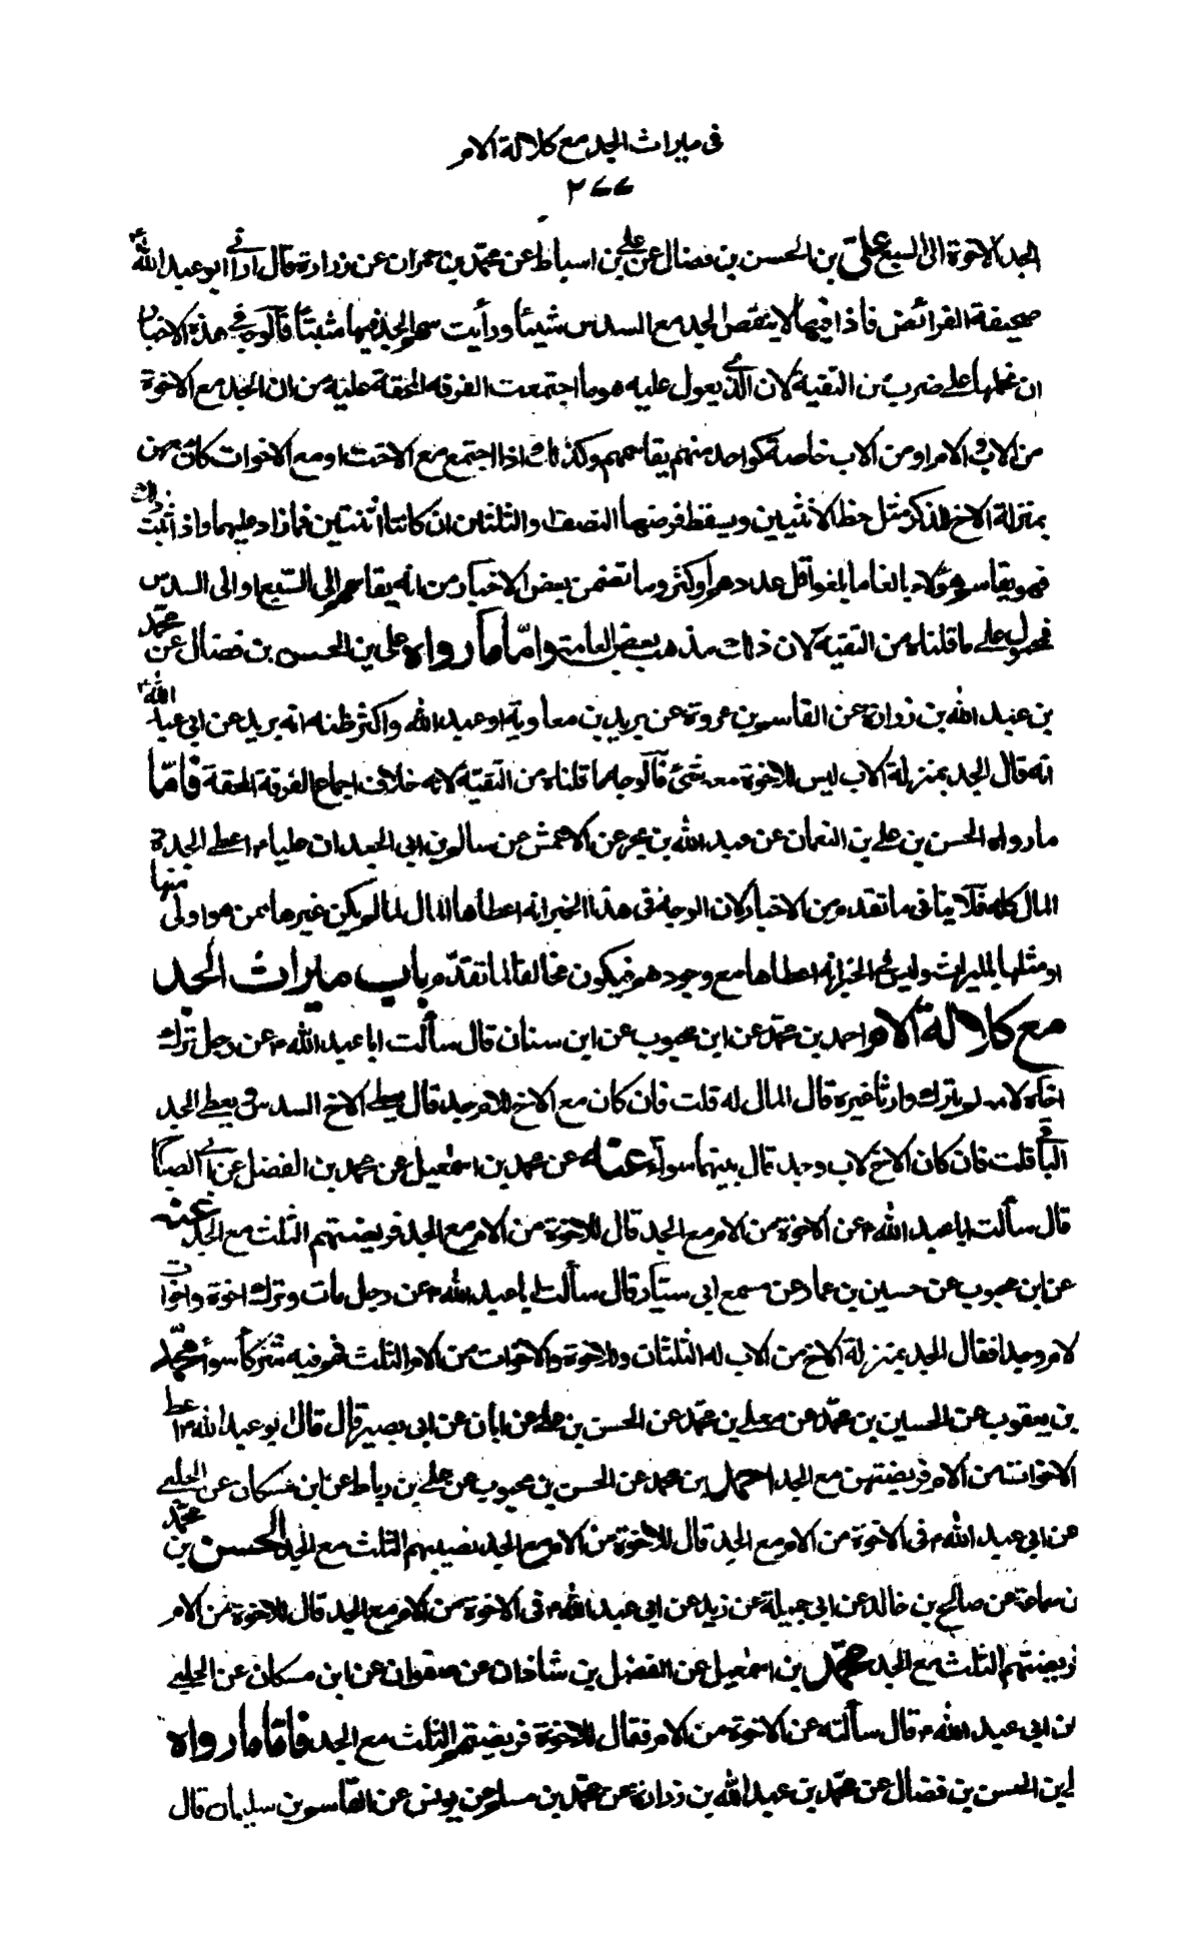 فى ميراث الجد مع كلالة الام
٢٧٧
الجد الاخوة الى السبع على بن الحسن بن فضال عن على بن اسباط عن محمد بن حمران عن زرارة قال ارانى ابو عبد الله ع
صحيفة الفرائض فاذا فيها لا ينقص الجد مع السدس شيئا ورأيت سهم الجد فيها مثبتا فالوجه فى هذه الاخبار
ان نحملها على ضرب من التقية لان الذى يعول عليه هو ما اجتمعت الفرقة المحقة عليه من ان الجد مع الاخوة
من الاب والام او من الاب خاصة كواحد منهم يقاسمهم وكذلك اذا اجتمع مع الاخت او مع الاخوات كان معهن
بمنزلة الاخ للذكر مثل حظ الانثيين ويسقط فرضها النصف او الثلثان ان كانتا اثنتين فما زاد عليهما واذا ثبت ذلك
فهو يقاسم هؤلاء بالغا ما بلغوا قل عددهم او كثر وما تضمن بعض الاخبار من انه يقاسمهم الى السبع او الى السدس
فمحمول على ما قلناه من التقية لان ذلك مذهب بعض العامة واما ما رواه على بن الحسن بن فضال عن محمد
بن عبد الله بن زرارة عن القاسم بن عروة عن بريد بن معاوية او عبد الله واكثر ظنه انه بريد عن ابى عبد الله ع
انه قال الجد بمنزلة الاب ليس للاخوة معه شئ فالوجه ما قلناه من التقية لانه خلاف اجماع الفرقة المحقة فاما
ما رواه الحسن بن على بن النعمان عن عبد الله بن بحر عن الاعمش عن سالم بن ابى الجعد ان عليا ع اعطى الجدة
المال كله فلا ينافى ما تقدم من الاخبار لان الوجه فى هذا الخبر انه اعطاها المال لما لم يكن غيرها ممن هو اولى منها
او مثلها بالميراث وليس فى الخبر انه اعطاها مع وجودهم فيكون مخالفا لما تقدم باب ميراث الجد
مع كلالة الام احمد بن محمد عن ابن محبوب عن ابن سنان قال سألت ابا عبد الله ع عن رجل ترك
اخاه لامه لم يترك وارثا غيره قال المال له قلت فان كان مع الاخ للام جد قال يعطى الاخ السدس ويعطى الجد
الباقى قلت فان كان الاخ لاب وجد قال بينهما سواء عنه عن محمد بن اسمعيل عن محمد بن الفضل عن ابى الصباح
قال سألت ابا عبد الله ع عن الاخوة من الام مع الجد قال للاخوة من الام مع الجد فريضتهم الثلث مع الجد عنه
عن ابن محبوب عن حسين بن عمار عن مسمع ابى سيار قال سألت ابا عبد الله ع عن رجل مات وترك اخوة واخوات
لام وجدا فقال الجد بمنزلة الاخ من الاب له الثلثان وللاخوة والاخوات من الام الثلث فهم فيه شركاء سواء محمد
بن يعقوب عن الحسين بن محمد عن معلى بن محمد عن الحسن بن على عن ابان عن ابى بصير قال قال ابو عبد الله ع اعط
الاخوات من الام فريضتهن مع الجد احمد بن محمد عن الحسن بن محبوب عن على بن رباط عن ابن مسكان عن الحلبى
عن ابى عبد الله ع فى الاخوة من الام مع الجد قال للاخوة من الام مع الجد نصيبهم الثلث مع الجد الحسن بن محمد
ن سماعة عن صالح بن خالد عن ابى جميلة عن زيد عن ابى عبد الله ع فى الاخوة من الام مع الجد قال للاخوة من الام
فريضتهم الثلث مع الجد محمد بن اسمعيل عن الفضل بن شاذان عن صفوان عن ابن مسكان عن الحلبى
عن ابى عبد الله ع قال سألته عن الاخوة من الام فقال للاخوة فريضتهم الثلث مع الجد فاما ما رواه
على بن الحسن بن فضال عن محمد بن عبد الله بن زرارة عن محمد بن مسلم عن يونس عن القاسم بن سليمان قال